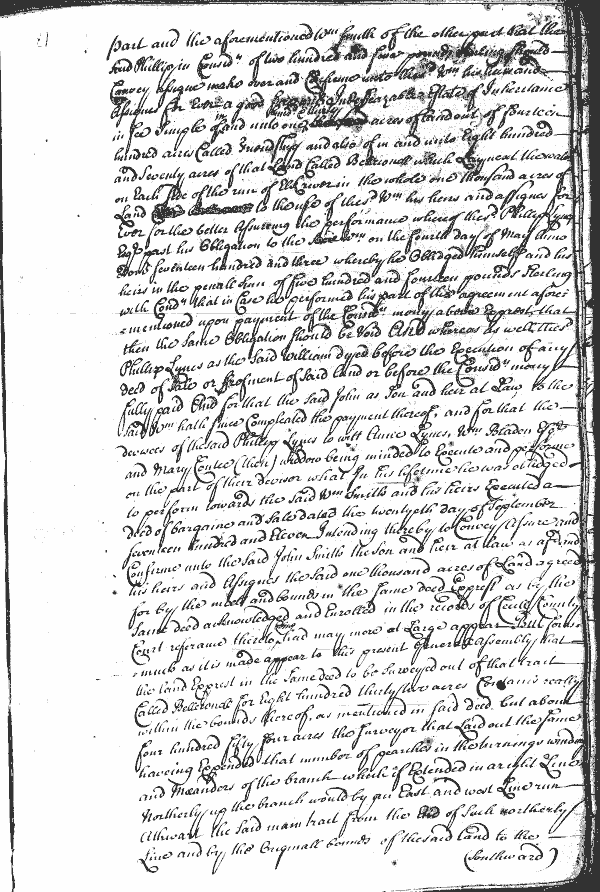 part and the aforementioned Wm Smith of the other part that the
said Phillip in Considn of two hundred and four pounds Sterling should
Convey assigne make over and Confirme unto the sd Wm his heirs and
Assignes for Ever a good Indefeizable Estate of Inheritance
in fee Simple in of and unto one acres of Land out of fourteen
hundred acres Called and also of in and unto Eight hundred
and Seventy acres of that Land Called Belleconell which Layneat the
on Each side of the run of Elk river in the whole one thousand acres of
Land to the use of the sd Wm his heirs and assignes for
Ever for the better Assureing the performance whereof the sd Phillip Lynes
past his Obligation to the Wm on the fourth day of May Anno
Dom Seventeen hundred and three whereby he Obledged himself and his
heirs in the penall Sum of five hundred and fourteen pounds Sterling
with Condn that in Case he performed his part of the agreement afore:
=mentioned upon payment of the Considn mony above Exprest, that
then the same Obligation should be Void And whereas as well the sd
Phillip Lynes as the said William dyed before the Execution of any
deed of Sale or feofment of said land or before the Considn mony
fully paid And for that the said John as Son and heir at Law to the
said Wm hath since Compleated the payment thereof, and for that the
devisees of the said Phillip Lynes to witt Anne Lynes, Wm Bladen Esqr
and Mary Contee (then) widdow being minded to Execute and performe
on the part of their devisor what in his lifetime he was obliedged
to perform towards the said Wm Smith and his heirs Executed a
deed of bargaine and Sale dated the twentyeth day of September
Seventeen hundred and Eleven Intending thereby to Convey Assure and
Confirme unto the said John Smith the son and heir at law as aforesd
his heirs and Assignes the said one thousand acres of Land agreed
for by the meets and bounds in the same deed Exprest as by the
same deed acknowledged and Enrolled in the records of Cecill County
Court referance thereto being had may more at Large appear But foras:
=much as it is made appear to this present Generall assembly that
the land Exprest in the same deed to be Surveyed out of that tract
Called Belleconell for Eight hundred thirty two acres Contains really
within the bounds thereof, as mentioned in said deed but about
four hundred fifty four acres the Surveyor that Laid out the same
haveing Expended that number of pearches in the turnings windings
and Meanders of the branch which if Extended in a right Line
Northerly up the branch would by an East and west Line run
Athwart the said main tract from the End of Such northerly
Line and by the Originall bounds of the said land to the
(Southward)